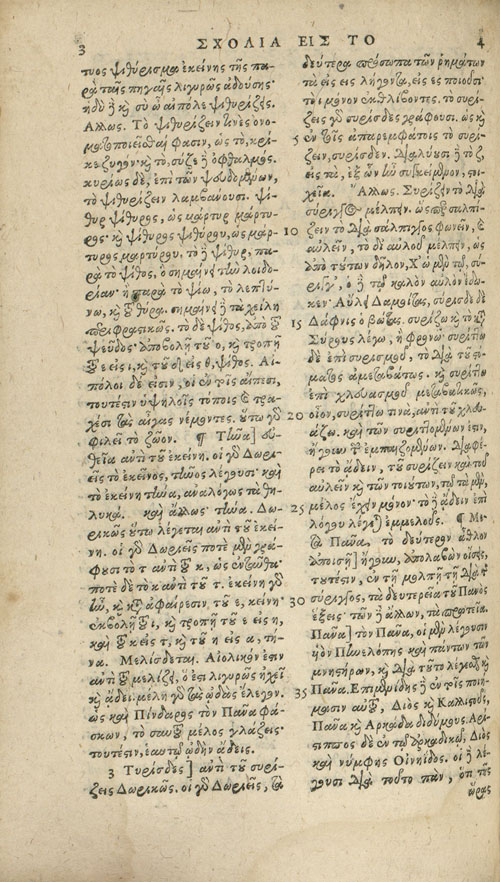 3 ΣΧΟΛΙΑ ΕΙΣ ΤΟ 4
τυος ψιθύρισμα ἐκείνης τῆς πα-
ρὰ ταῖς πηγαῖς λιγυρῶς ἀδούσης·
ἡδὺ ἢ καὶ σὺ ὦ αἰπόλε ψιθυρίζεις.
Αλλως. Τὸ ψιθυρίζειν τινὲς ὀνο-
ματοποιεῖσθαί φασιν, ὡς τὸ, κρί-
κε ζυγὸν· καὶ τὸ, σύζε ἢ ὀφθαλμός.
κυρίως δὲ, ἐπὶ τῶν
τὸ ψιθυρίζειν λαμβάνουσι. ψί-
θυρ ψίθυρος, ὡς μάρτυρ μάρτυ-
ρος· καὶ ψίθυρος ψιθύρου, ὡς μάρ-
τυρος μαρτύρου. τὸ ἢ ψίθυρ, πα-
ρὰ τὸ ψίθος, ὁ σημαίνει τὴν λοιδο-
ρίαν· ἢ παρὰ τὸ ψίω, τὸ λεπτύ-
νω, καὶ θύρα. σημαίνει ἢ τὰ χείλη
περιφραστικῶς. τὸ δὲ ψίθος, ἀπὸ τοῦ
ψεῦδος· ἀποβολῇ τοῦ ο, καὶ τροπῇ
τοῦ ε εἰς ι, καὶ τοῦ δ εἰς θ, ψίθος. Αἰ-
πόλοι δέ εἰσιν, οἱ ἐν τοῖς αἴπεσι,
τουτέστιν ὑψηλοῖς τόποις καὶ τρα-
χέσι τὰς αἶγας νέμοντες. οὕτω γὰρ
φιλεῖ τὸ ζῶον. ¶ Τήνα] εὐ-
θεῖα ἀντὶ τοῦ ἐκείνη. οἱ γὰρ Δωρι-
εῖς τὸ ἐκεῖνος, τῆνος λέγουσι· καὶ
τὸ ἐκείνη τήνα, ἀναλόγως τὰ θη-
λυκά. καὶ ἄλλως· τήνα. Δω-
ρικῶς οὕτω λέγεται ἀντὶ τοῦ ἐκεί-
νη. οἱ γὰρ Δωριεῖς ποτὲ μὲν γρά-
φουσι τὸ τ ἀντὶ τοῦ κ, ὡς ἐνταῦθα·
ποτὲ δὲ τὸ κ ἀντὶ τοῦ τ. ἐκείνη γὰρ
ἦν, καὶ κατ' ἀφαίρεσιν τοῦ ε, κείνη·
ἐκβολῇ τοῦ ι, καὶ τροπῇ τοῦ ε εἰς η,
καὶ τοῦ κ εἰς τ, καὶ τοῦ η εἰς α, τή-
να. Μελίσδεται. Αἰολικόν ἐστιν
ἀντὶ τοῦ μελίζει, ὅ ἐστι λιγυρῶς ἠχεῖ
καὶ ᾄδει. μέλη γὰρ τὰς ᾠδὰς ἔλεγον.
ὡς καὶ Πίνδαρος τὸν Πᾶνα φά-
σκων, τὸ σαυτοῦ μέλος γλάζεις·
τουτέστιν, ἑαυτῷ ᾠδὴν ᾄδεις.
3 Τυρίσδες] ἀντὶ τοῦ συρί-
ζεις Δωρικῶς. οἱ γὰρ Δωριεῖς, τὰ
δεύτερα πρόσωπα τῶν ῥημάτων
τὰ εἰς εις λήγοντα, εἰς ες ποιοῦσι
τὸ ι μόνον ἐκθλίβοντες. τὸ συρί-
ζεις γὰρ συρίσδες γράφουσι. ὡς καὶ
5 ἐν τοῖς ἀπαρεμφάτοις τὸ συρί-
ζειν, συρίσδεν. Διαλύουσι ἢ τὸ ζ,
εἰς τὰ, ἐξ ὧν ἦν συγκείμενον, στοι-
χεῖα. Ἄλλως. Συρίζειν τὸ διὰ
σύριγγος μέλπειν. ὥσπερ σαλπί-
10 ζειν τὸ διὰ σάλπιγγος φωνεῖν, καὶ
αὐλεῖν, τὸ δι' αὐλοῦ μέλπειν, ὡς
ἀπὸ τούτων δῆλον, Χ' ὡ μὲν τῷ, συ-
ριγγ', ὁ ἢ τῷ καλὸν αὐλὸν ἔδω-
κεν· Αὔλει Δαμοίτας, σύρισδε δὲ
15 Δάφνις ὁ βώτας. συρίζω καὶ τὸ
Σύριγγος λέγω, ἢ φρονῶ· συρίττω
δὲ ἐπὶ συρισμοῦ, τὸ διὰ τοῦ στό-
ματος ἀμεταβάτως. καὶ συρίττω
ἐπὶ χλευασμοῦ μεταβατικῶς,
20 οἷον, συρίττω τινὰ, ἀντὶ τοῦ χλευ-
άζω. καὶ τῶν συριττομένων ἐστὶν,
ἤγουν τῶν ἐμπαιζομένων. Διαφέ-
ρει τὸ ἄδειν, τοῦ συρίζειν καὶ τοῦ
αὐλεῖν καὶ τῶν τοιούτων, τῷ τὰ μὲν,
25 μέλος ἔχειν μόνον· τὸ ἢ ἄδειν ἐπὶ
λόγου λέγεται ἐμμελοῦς. ¶ Με-
τὰ Πᾶνα, τὸ δεύτερον ἆθλον
ἀποισῇ] ἤγουν, ἀπολαβὼν οἴσεις,
τουτέστιν, ἐν τῇ μολπῇ τῇ διὰ τῆς
30 σύριγγος, τὰ δευτερεῖα τοῦ Πανὸς
ἕξεις· τῶν ἢ ἄλλων, τὰ πρωτεῖα.
Πᾶνα] τὸν Πᾶνα, οἱ μὲν λέγουσιν
υἱὸν Πηνελόπης καὶ πάντων τῶν
μνηστήρων, καὶ διὰ τοῦτο λέγεσθαι καὶ
35 Πᾶνα. Επιμενίδης ἢ ἐν τοῖς ποιή-
μασιν αὐτοῦ, Διὸς καὶ Καλλιστοῦς,
Πᾶνα καὶ Αρκάδα διδύμους. Αρί-
στιππος δὲ ἐν τῷ Ἀρκαδικῷ, Διὸς
καὶ νύμφης Οἰνηίδος. οἱ ἢ λέ-
γουσι διὰ τοῦτο πᾶν, ὅτι τῆς
ὥρας